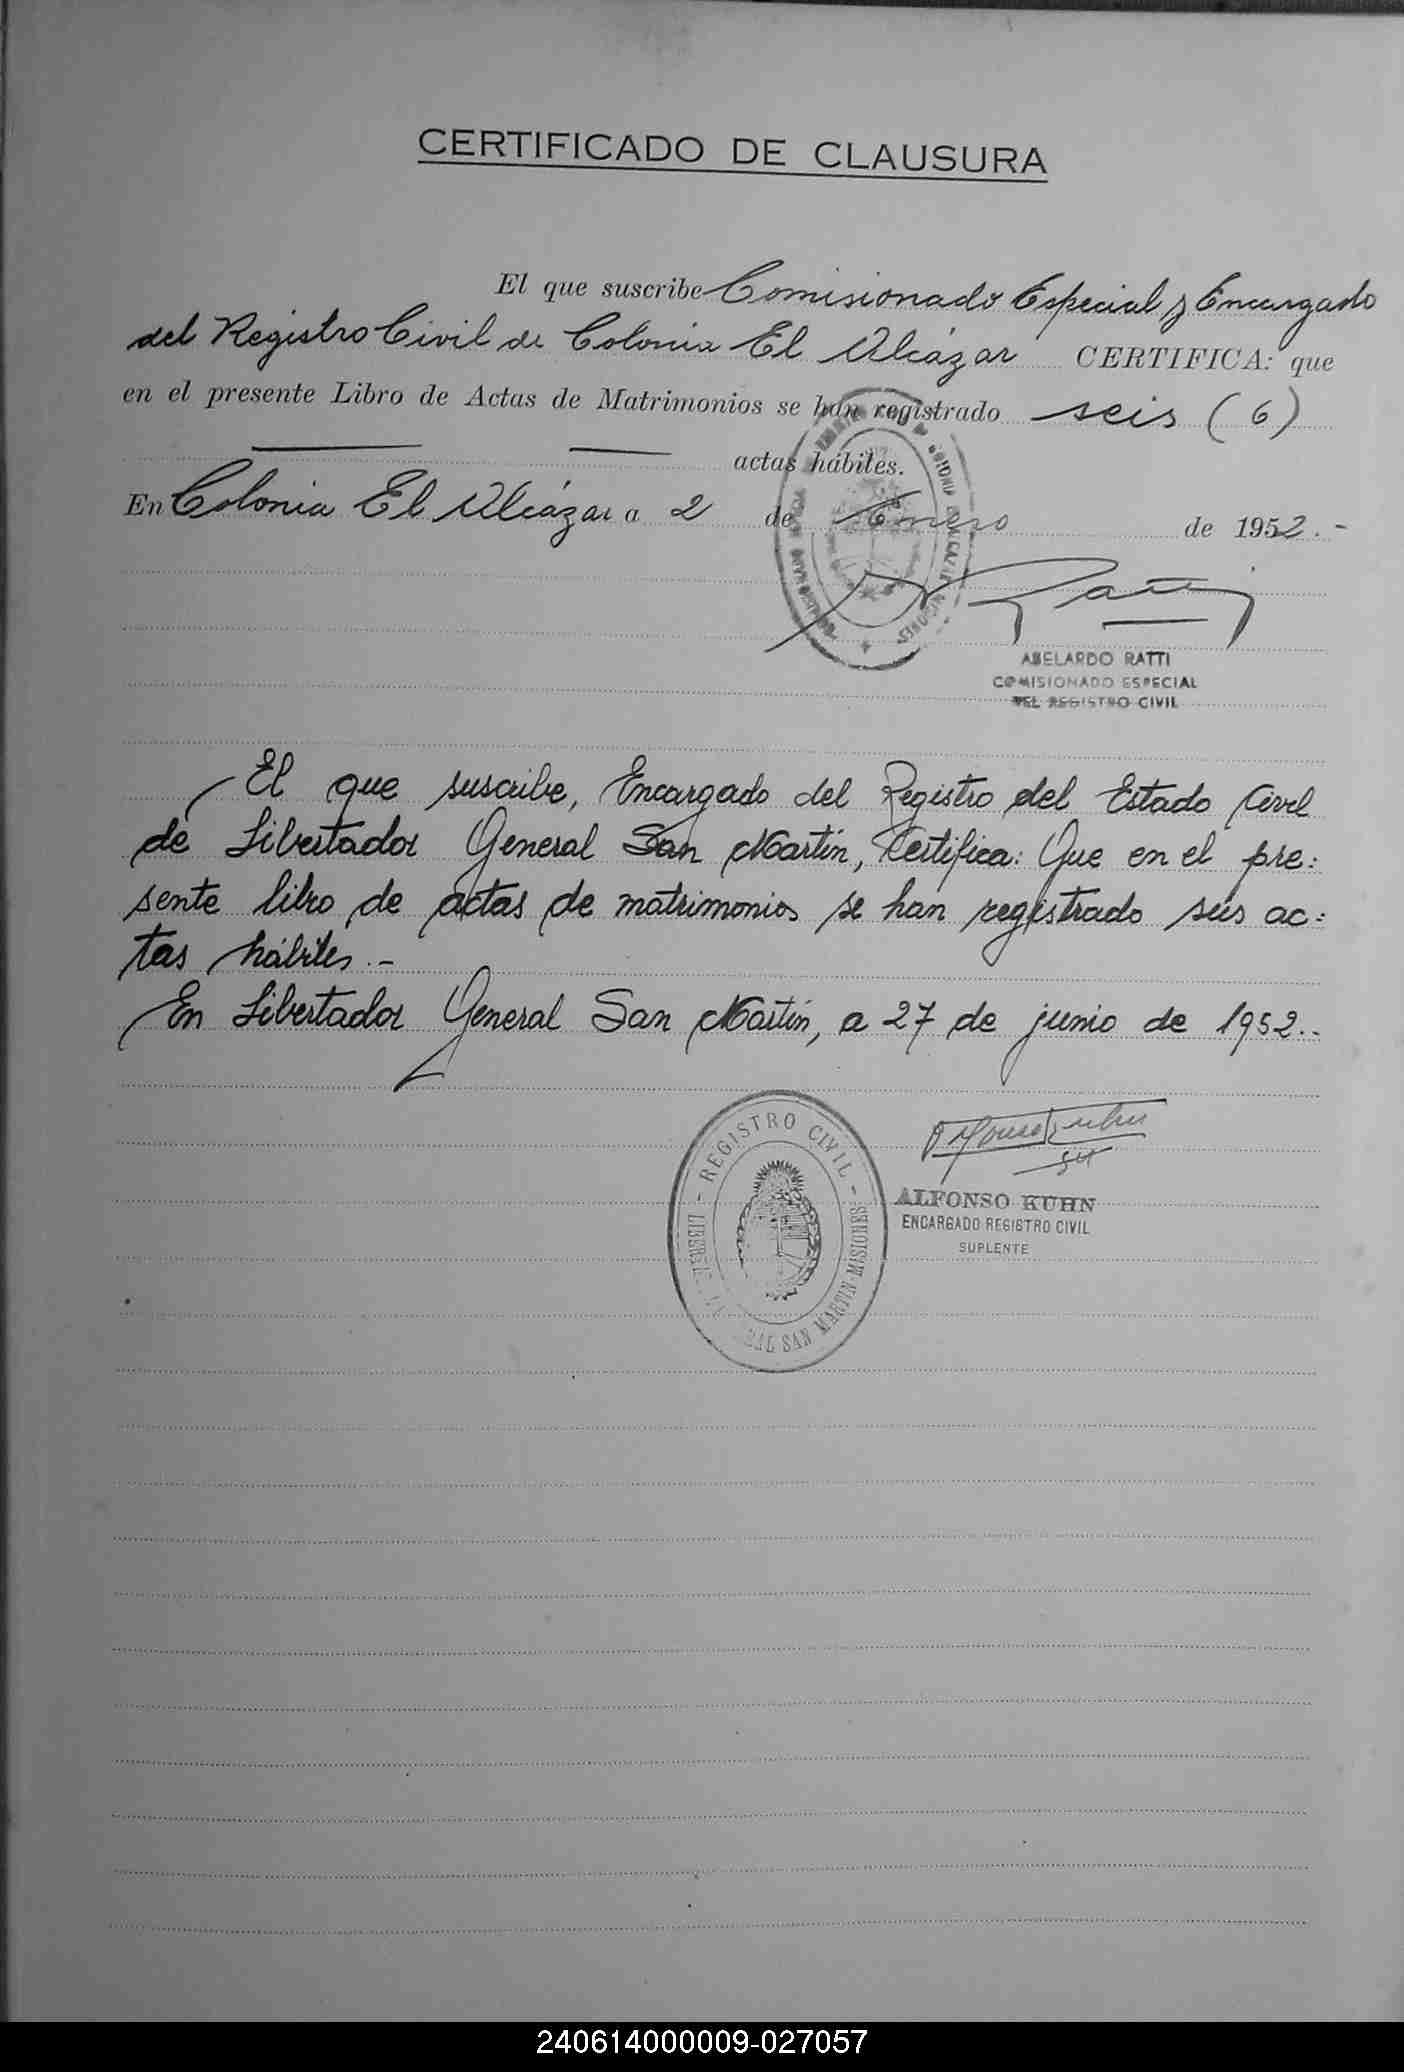 CERTIFICADO DE CLAUSURA
El que suscribe Comisionado Especial y Encargado
del Registro Civil de Colonia El Alcázar CERTIFICA: que
en el presente Libro de Actas de Matrimonios se han registrado seis (6)
actas hábiles.
En Colonia El Alcázar a 2 de Enero de 1952.-
Ratti
ABELARDO RATTI
COMISIONADO ESPECIAL
DEL REGISTRO CIVIL
El que suscribe, Encargado del Registro del Estado Civil
de Libertador General San Martín, Certifica: Que en el pre=
sente libro de actas de matrimonios se han registrado seis ac=
tas hábiles.-
En Libertador General San Martín, a 27 de junio de 1952.-
- REGISTRO CIVIL -
SAN MARTIN-MISIONES
Alfonso Kuhn
ALFONSO KUHN
ENCARGADO REGISTRO CIVIL
SUPLENTE
240614000009-027057